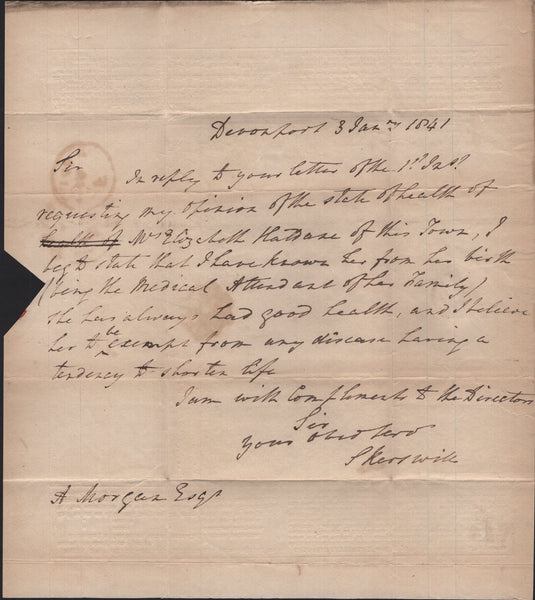 Devonport 3 Jany 1841
Sir
In reply to your letter of the 1st Inst
requesting my opinion of the state of health of
health of Mrs Elizabeth Haldane of this Town, I
beg to state that I have known her from her birth
(being the Medical Attendant of her Family)
she has always had good health, and I believe
her to be exempt from any disease having a
tendency to shorten life
I am with Compliments to the Directors
Sir
Your Obed Serv
S Kerswill
A Morgan Esqr